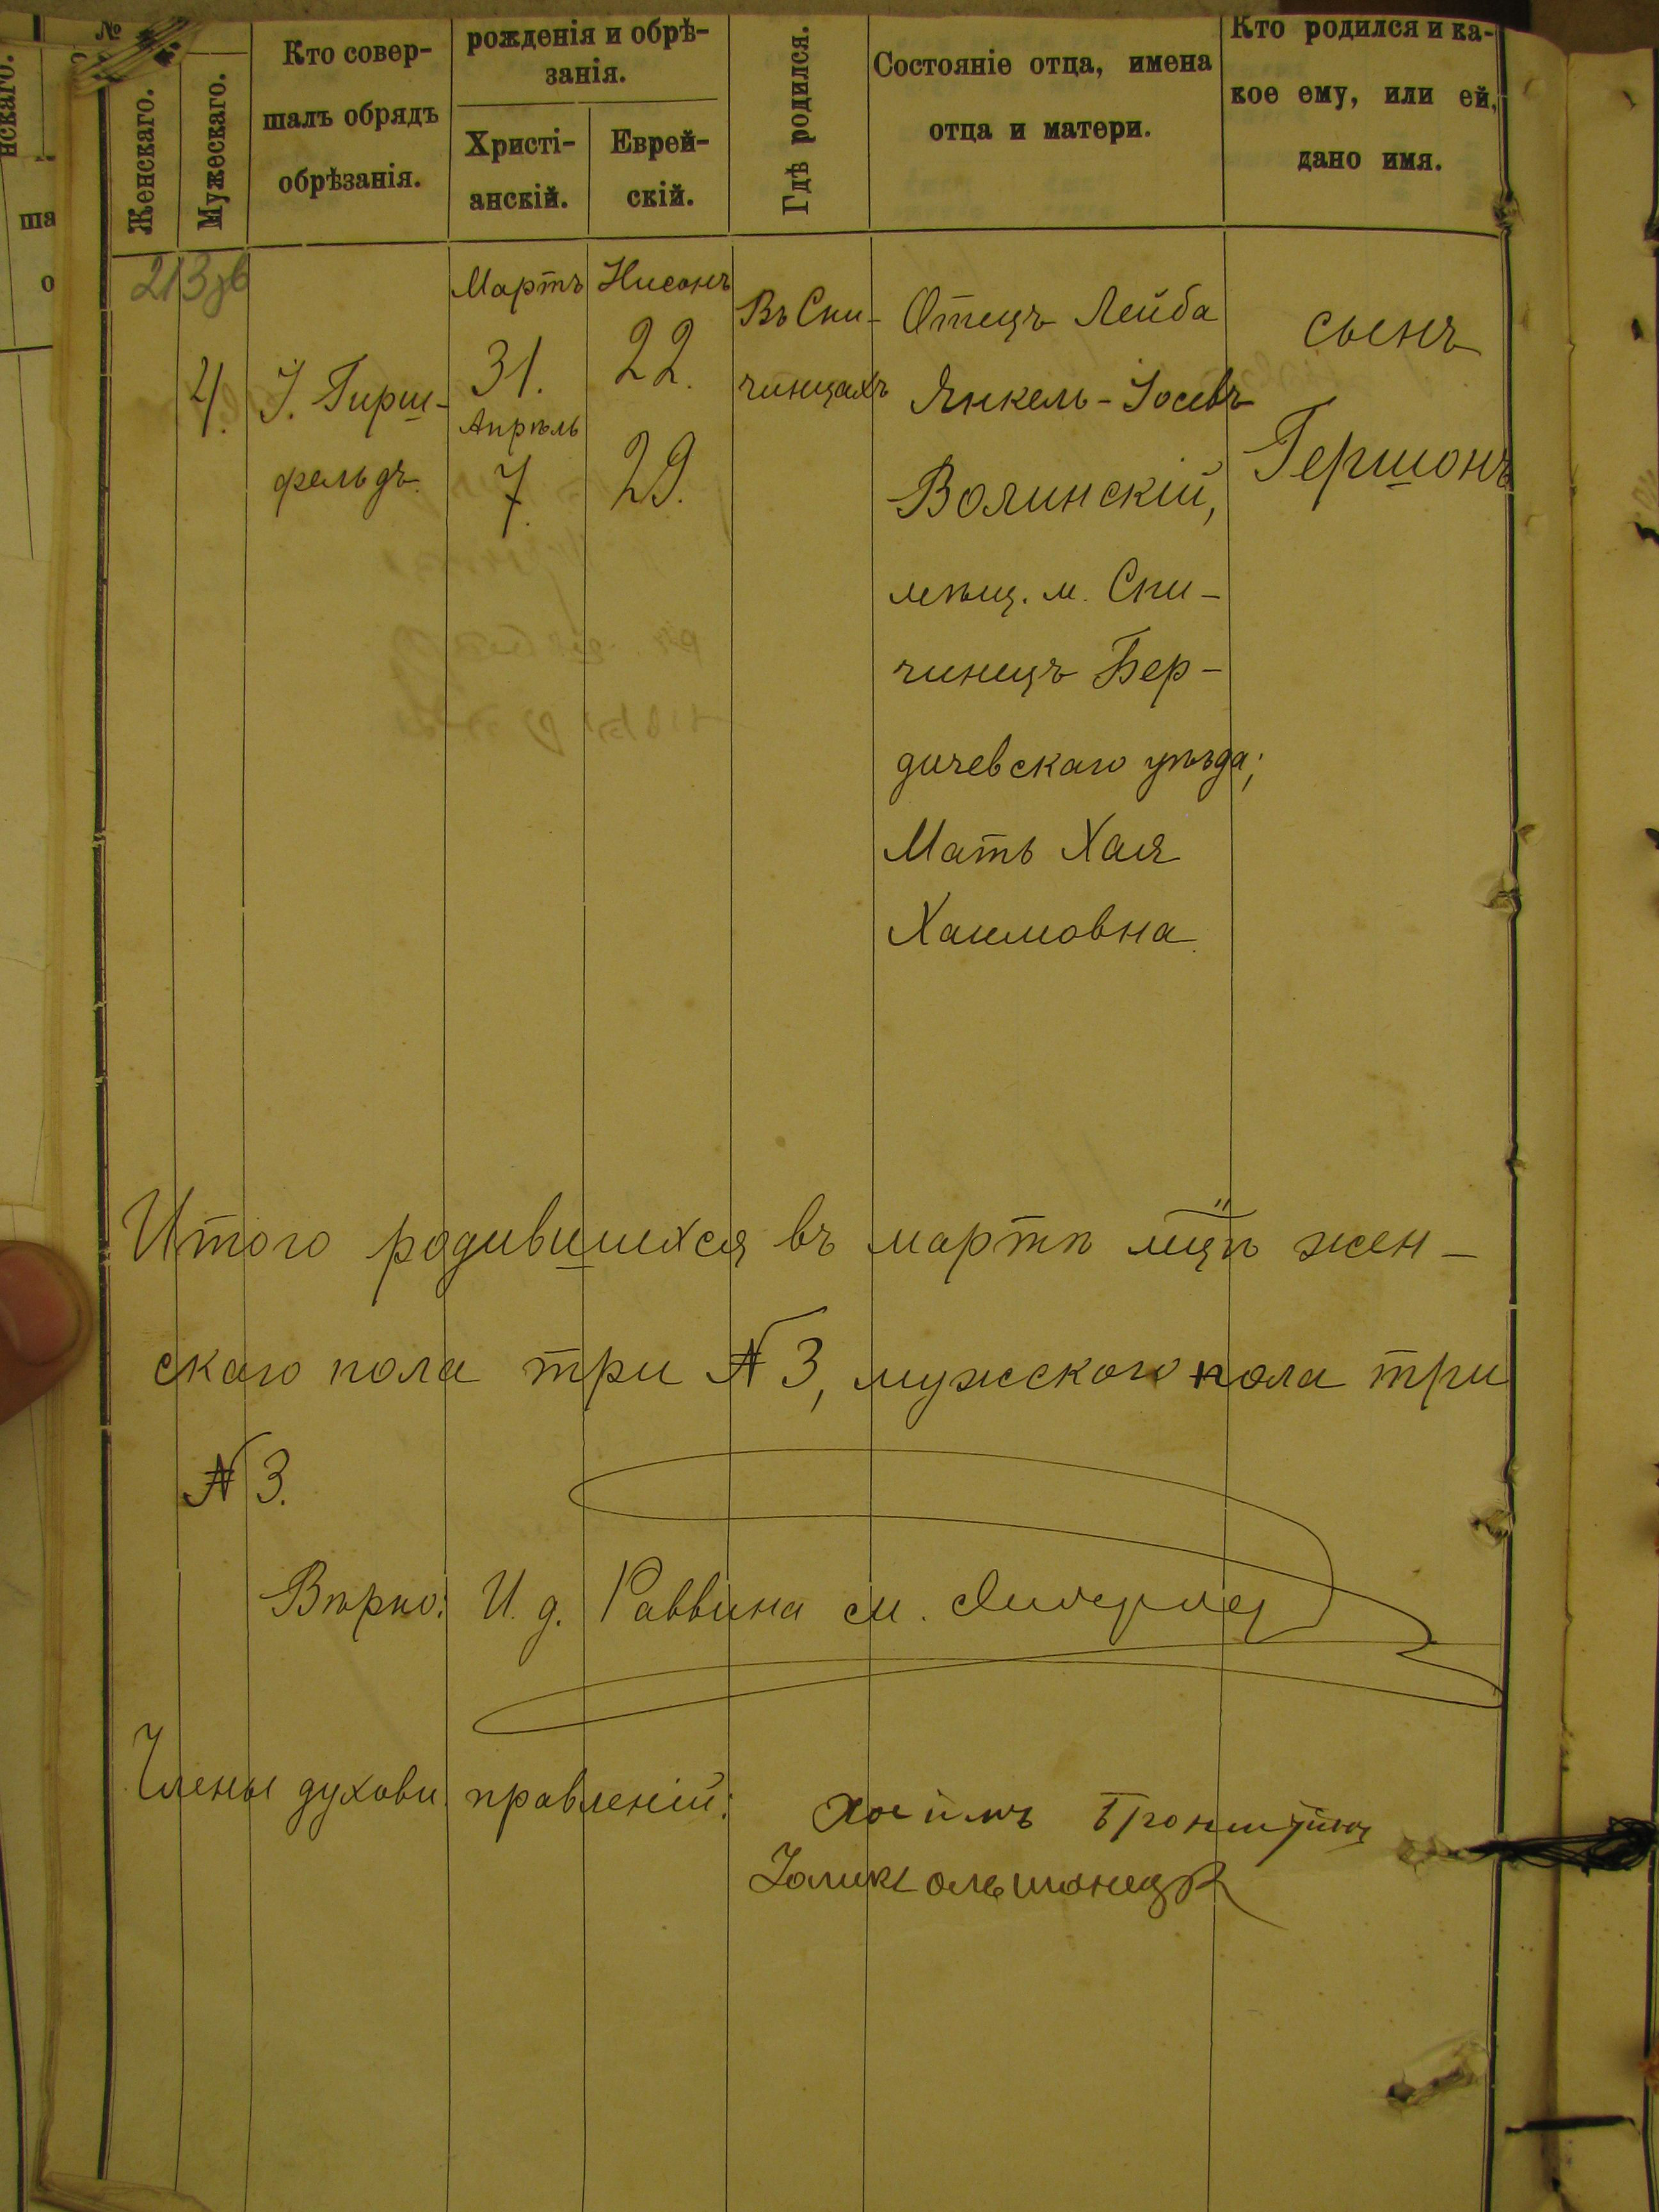 №
нскаго.
ша
о
Женскаго.
Мужескаго.
Кто совер-
шалъ обрядъ
обрѣзанія.
рожденія и обрѣ-
занія.
Христі-
анскій.
Еврей-
скій.
Гдѣ родился.
Состояніе отца, имена
отца и матери.
Кто родился и ка-
кое ему, или ей,
дано имя.
213
4.
І. Гирш-
фельдъ.
Мартъ
31.
Апрѣль
7.
Нисонъ
22.
29.
Въ Спи-
чинцахъ
Отецъ Лейба
Янкель-Іосевъ
Волинскій,
мѣщ. м. Спи-
чинецъ Бер-
дичевскаго уѣзда;
Мать Хая
Хаимовна.
сынъ
Гершонъ
Итого родившихся въ мартѣ мцѣ жен-
скаго пола три № 3, мужского пола три
№ 3.
Вѣрно: И. д. Раввина
Члены духовн. правленій: Хаимъ Бронштейнъ